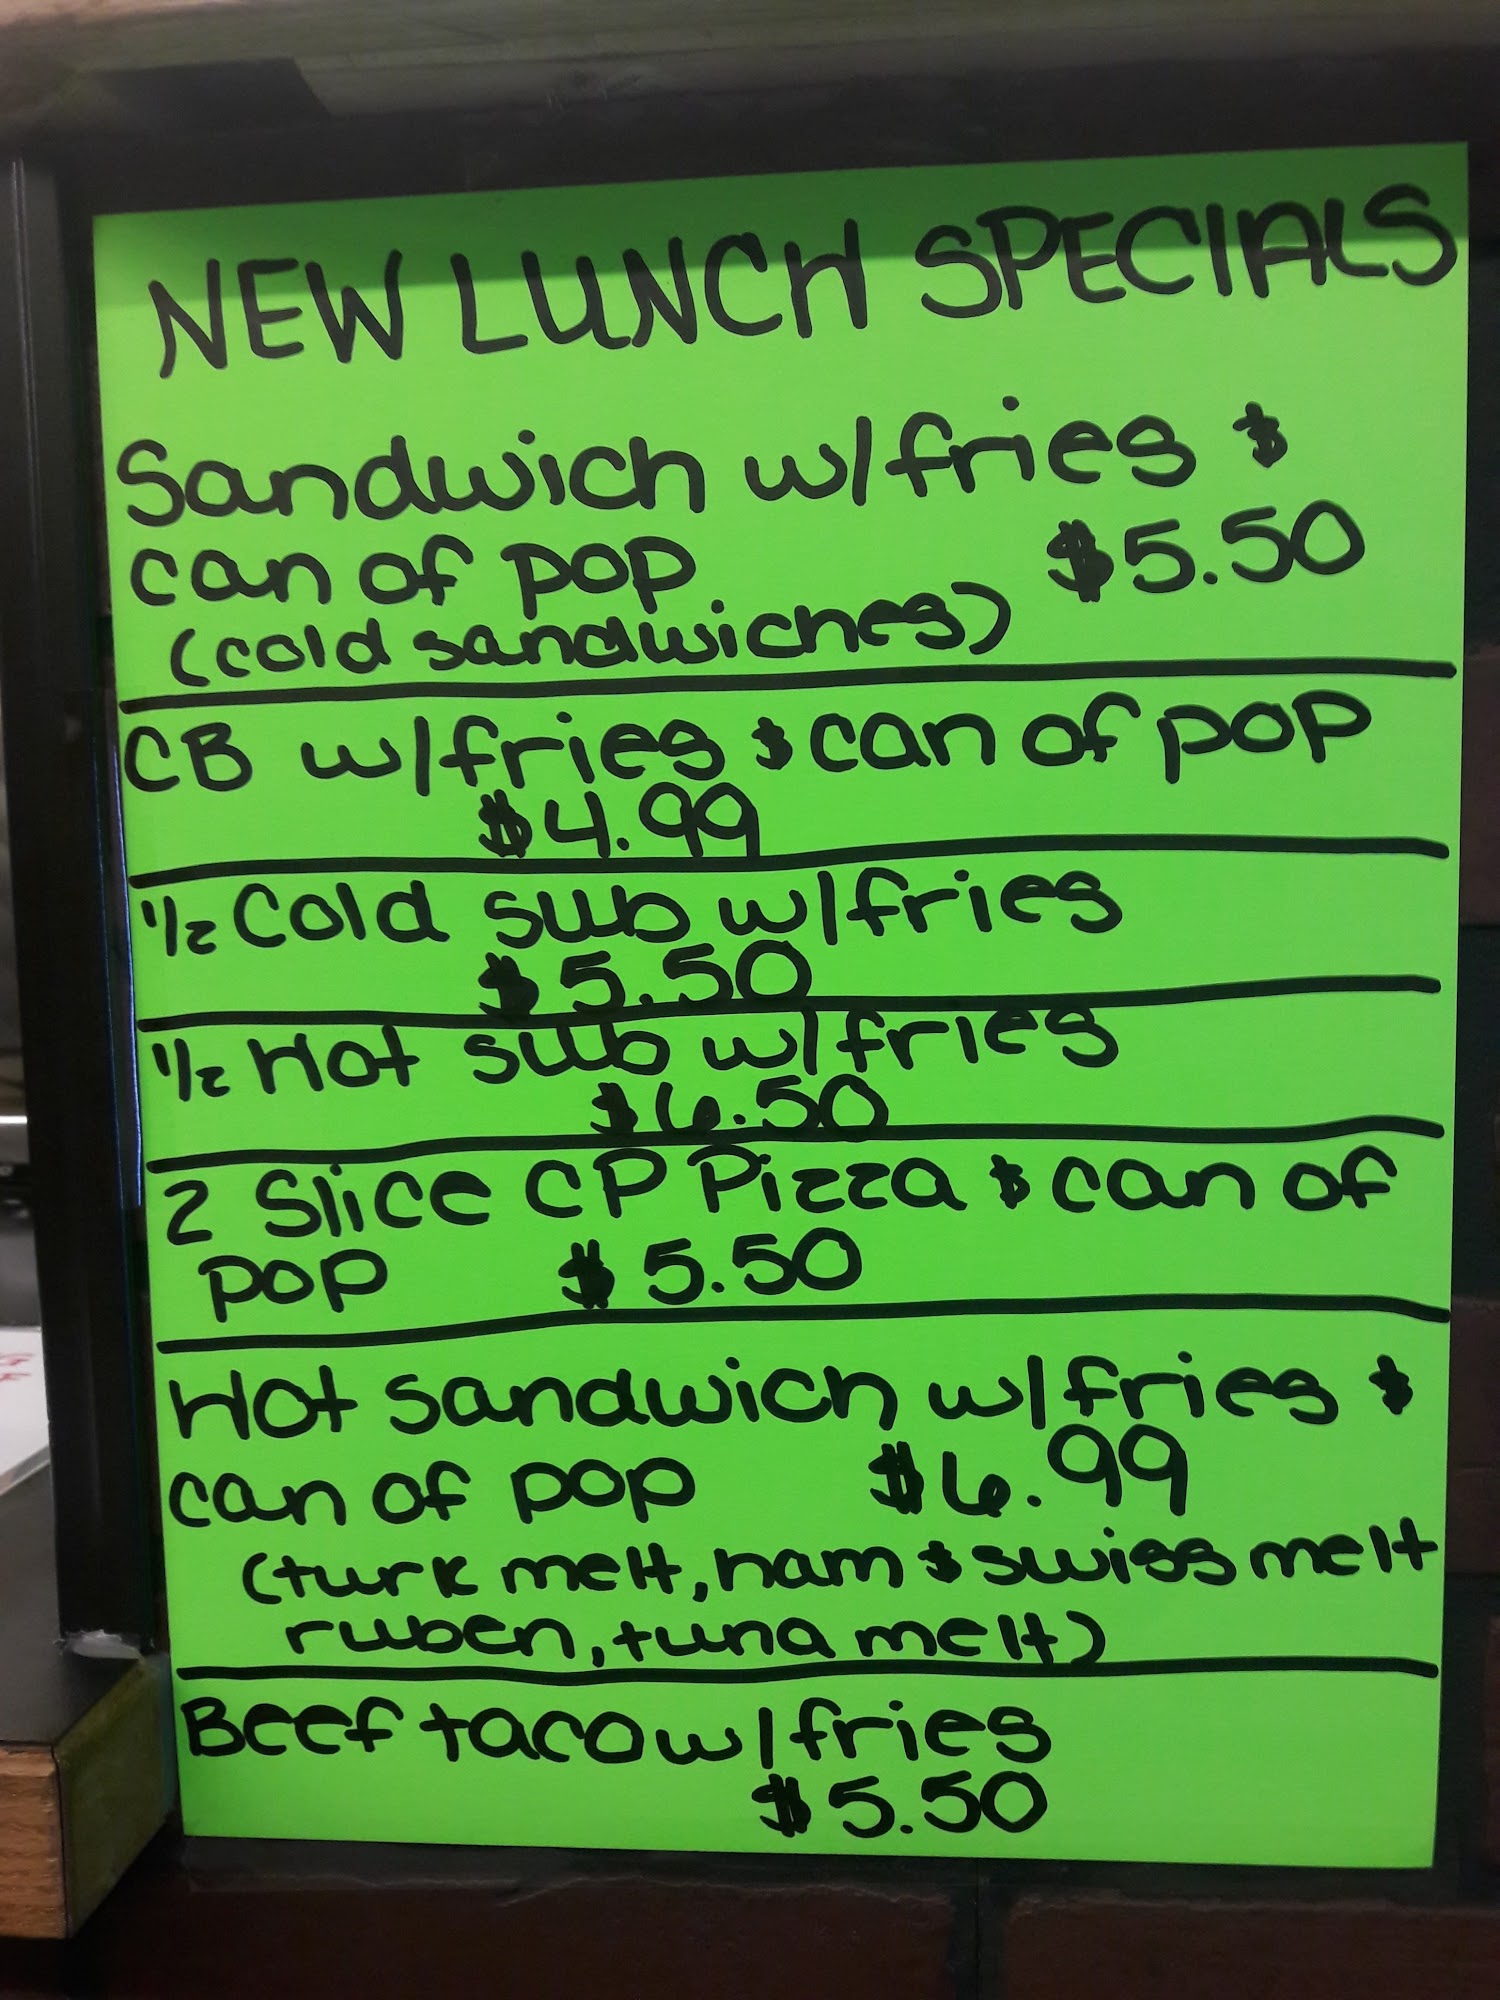 NEW LUNCH SPECIALS
Sandwich w/fries &
can of pop $5.50
(cold sandwiches)
CB w/fries & can of pop
$4.99
1/2 Cold sub w/fries
$5.50
1/2 Hot sub w/fries
$6.50
2 Slice CP Pizza & can of
pop $5.50
Hot sandwich w/fries &
can of pop $6.99
(turk melt, ham & swiss melt
ruben, tuna melt)
Beef taco w/fries
$5.50